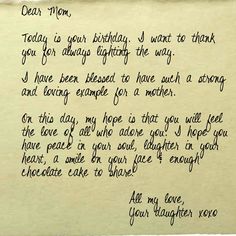 Dear Mom,
Today is your birthday. I want to thank
you for always lighting the way.
I have been blessed to have such a strong
and loving example for a mother.
On this day, my hope is that you will feel
the love of all who adore you. I hope you
have peace in your soul, laughter in your
heart, a smile on your face & enough
chocolate cake to share!
All my love,
Your daughter xoxo